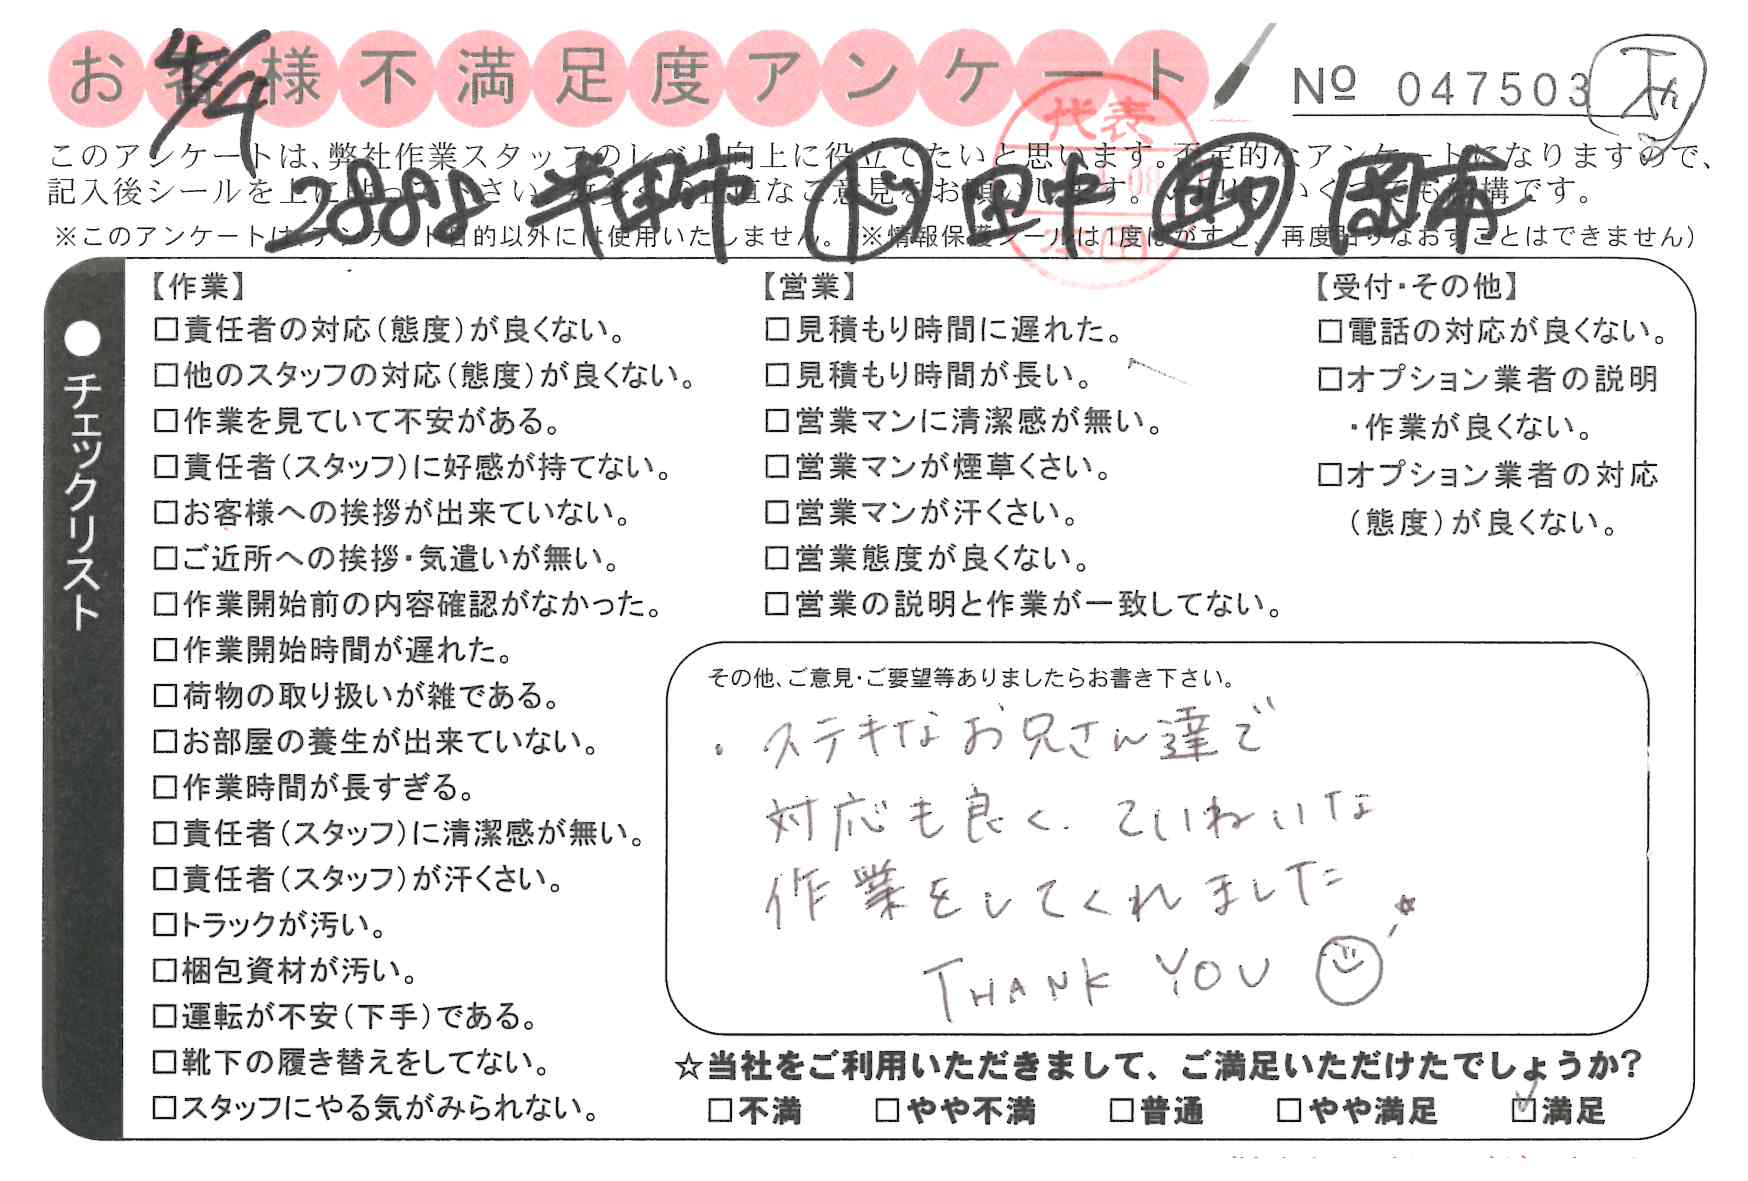 お客様不満足度アンケート
4/4
№ 047503
このアンケートは、弊社作業スタッフのレベル向上に役立てたいと思います。否定的なアンケートになりますので、
記入後シールを上に貼って下さい。数多くの正直なご意見をお願いします。〆切は、いくつでも結構です。
半田市 ド 田中 岡本
代表
※このアンケートは、アンケート目的以外には使用いたしません。(※情報保護シールは1度はがすと、再度貼りなおすことはできません)
●チェックリスト
【作業】
□責任者の対応(態度)が良くない。
□他のスタッフの対応(態度)が良くない。
□作業を見ていて不安がある。
□責任者(スタッフ)に好感が持てない。
□お客様への挨拶が出来ていない。
□ご近所への挨拶・気遣いが無い。
□作業開始前の内容確認がなかった。
□作業開始時間が遅れた。
□荷物の取り扱いが雑である。
□お部屋の養生が出来ていない。
□作業時間が長すぎる。
□責任者(スタッフ)に清潔感が無い。
□責任者(スタッフ)が汗くさい。
□トラックが汚い。
□梱包資材が汚い。
□運転が不安(下手)である。
□靴下の履き替えをしてない。
□スタッフにやる気がみられない。
【営業】
□見積もり時間に遅れた。
□見積もり時間が長い。
□営業マンに清潔感が無い。
□営業マンが煙草くさい。
□営業マンが汗くさい。
□営業態度が良くない。
□営業の説明と作業が一致してない。
【受付・その他】
□電話の対応が良くない。
□オプション業者の説明
・作業が良くない。
□オプション業者の対応
(態度)が良くない。
その他、ご意見・ご要望等ありましたらお書き下さい。
・ステキなお兄さん達で
対応も良く、ていねいな
作業をしてくれました
THANK YOU
☆当社をご利用いただきまして、ご満足いただけたでしょうか?
□不満 □やや不満 □普通 □やや満足 ☑満足